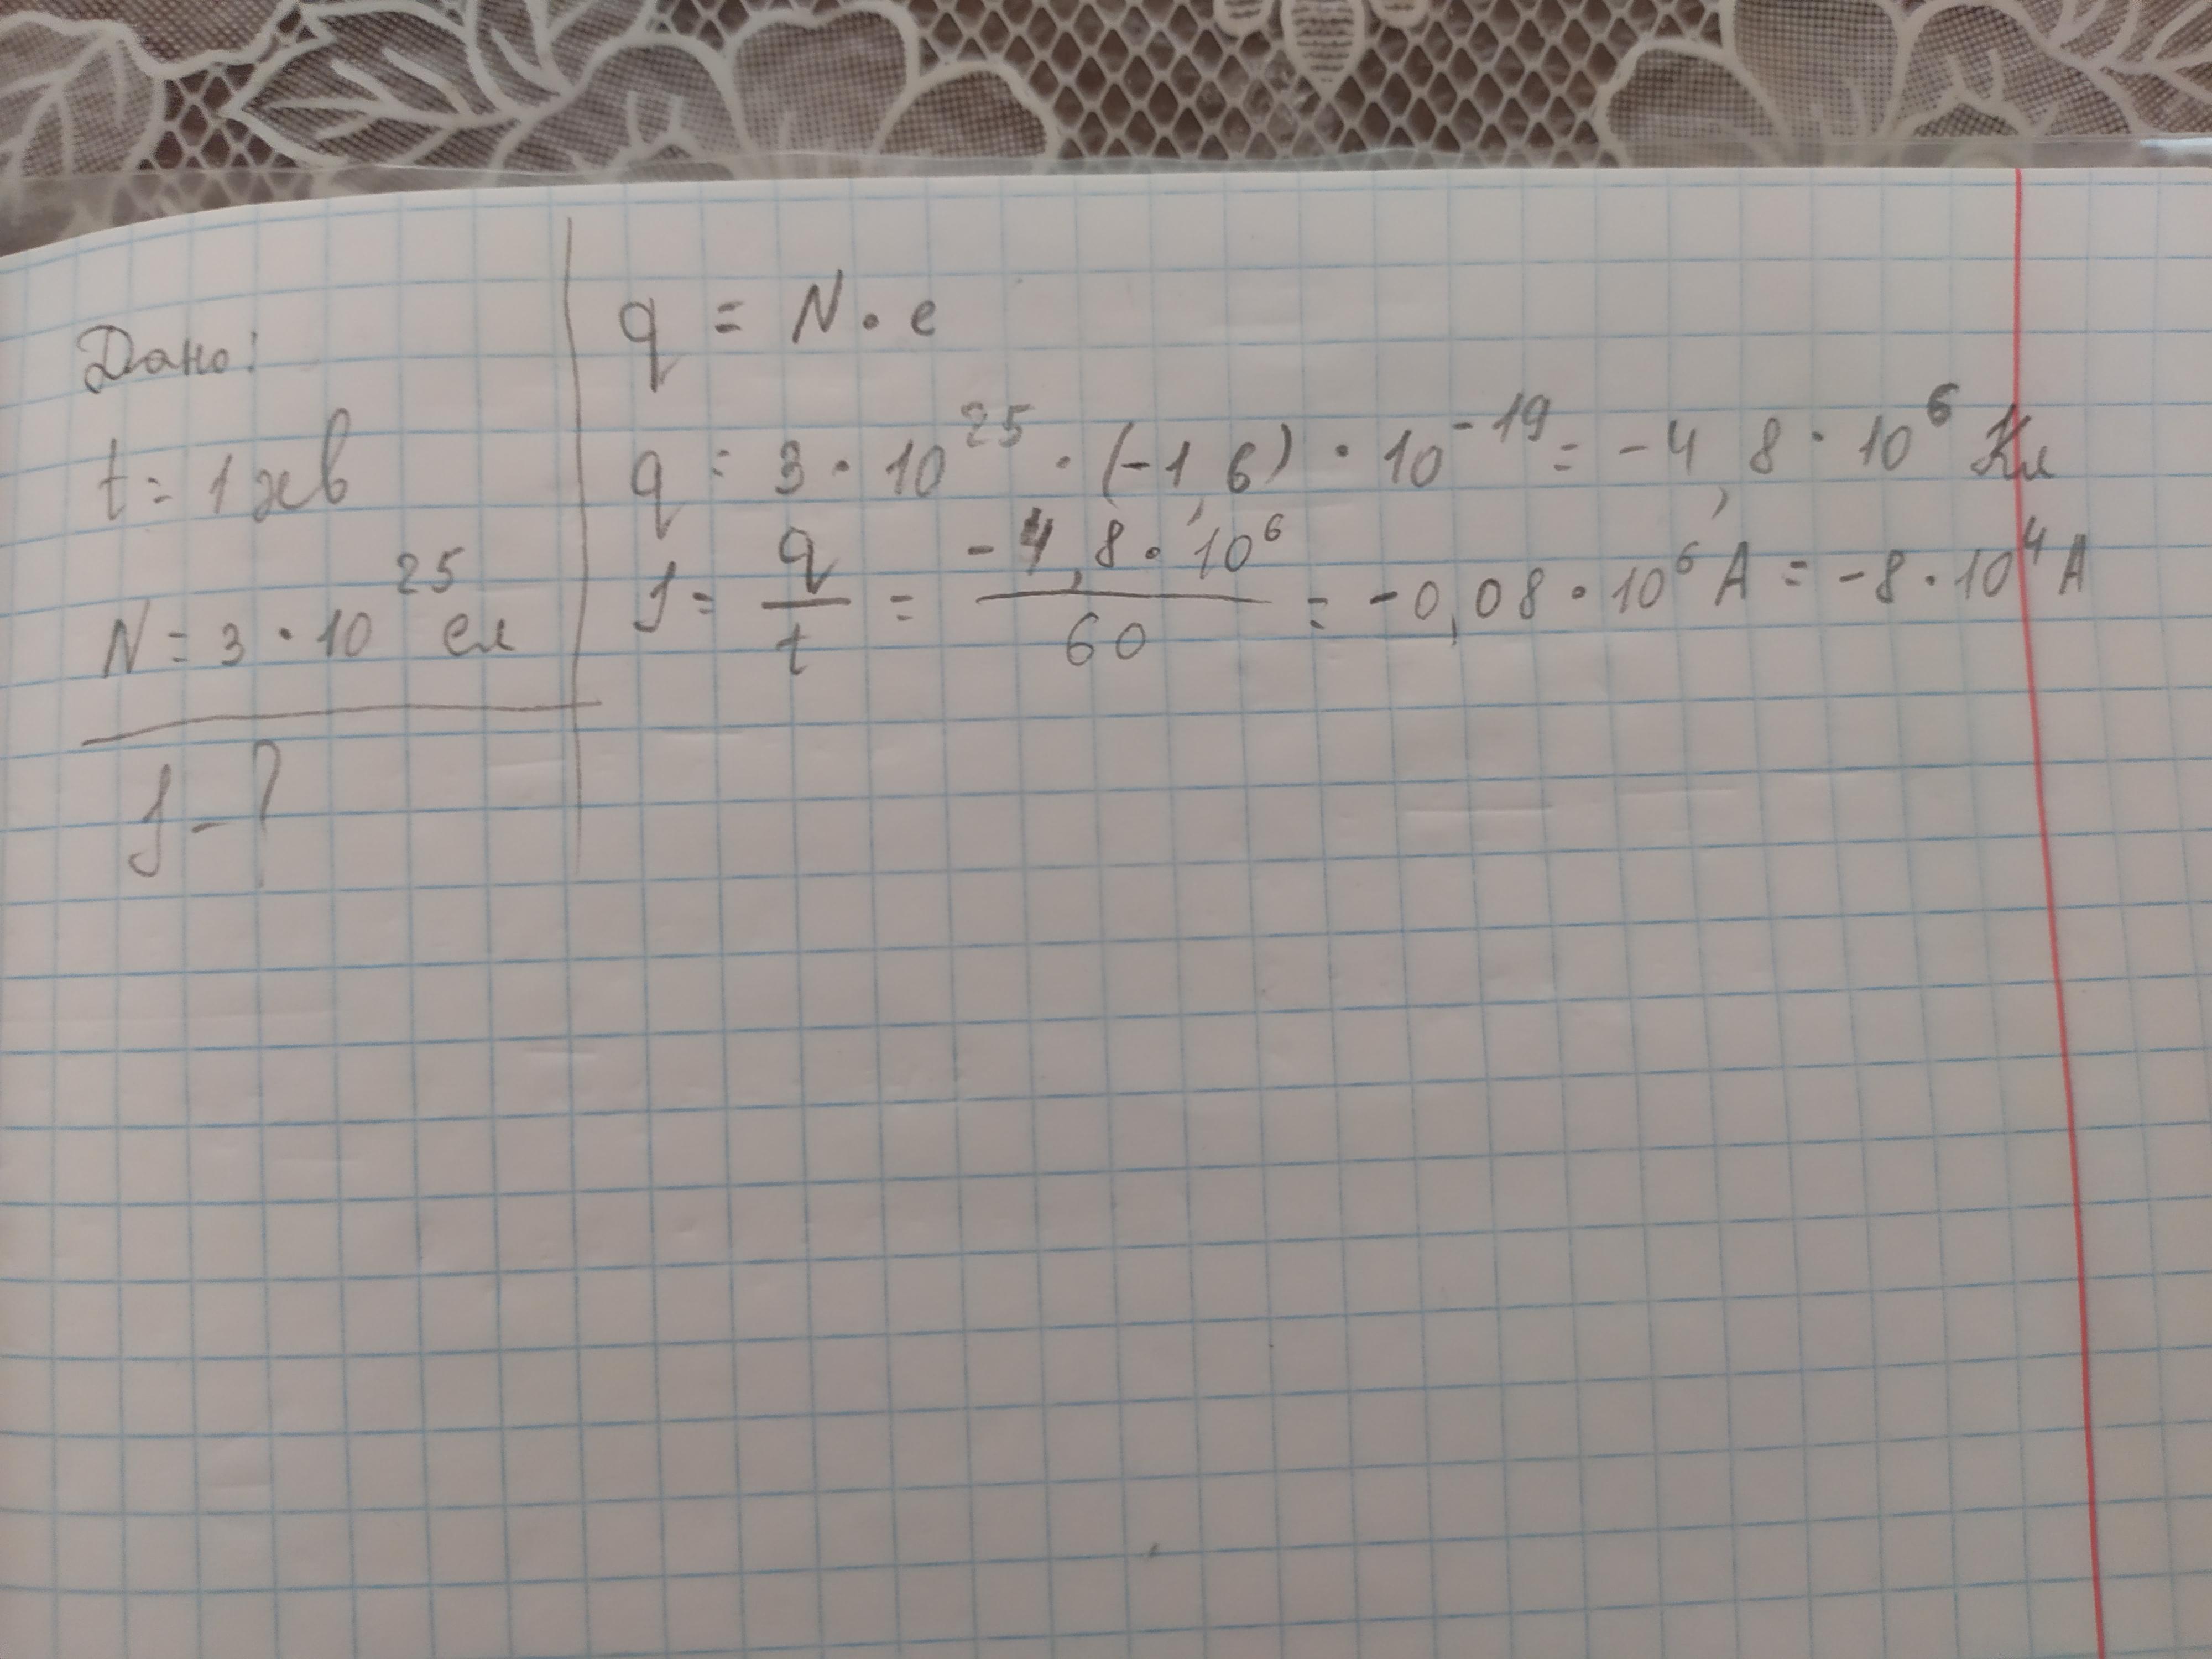 Дано:
t = 1 хв
N = 3 · 10²⁵ ел
J - ?
q = N · e
q = 3 · 10²⁵ · (-1,6) · 10⁻¹⁹ = -4,8 · 10⁶ Кл
J = q/t = -4,8 · 10⁶/60 = -0,08 · 10⁶ А = -8 · 10⁴ А